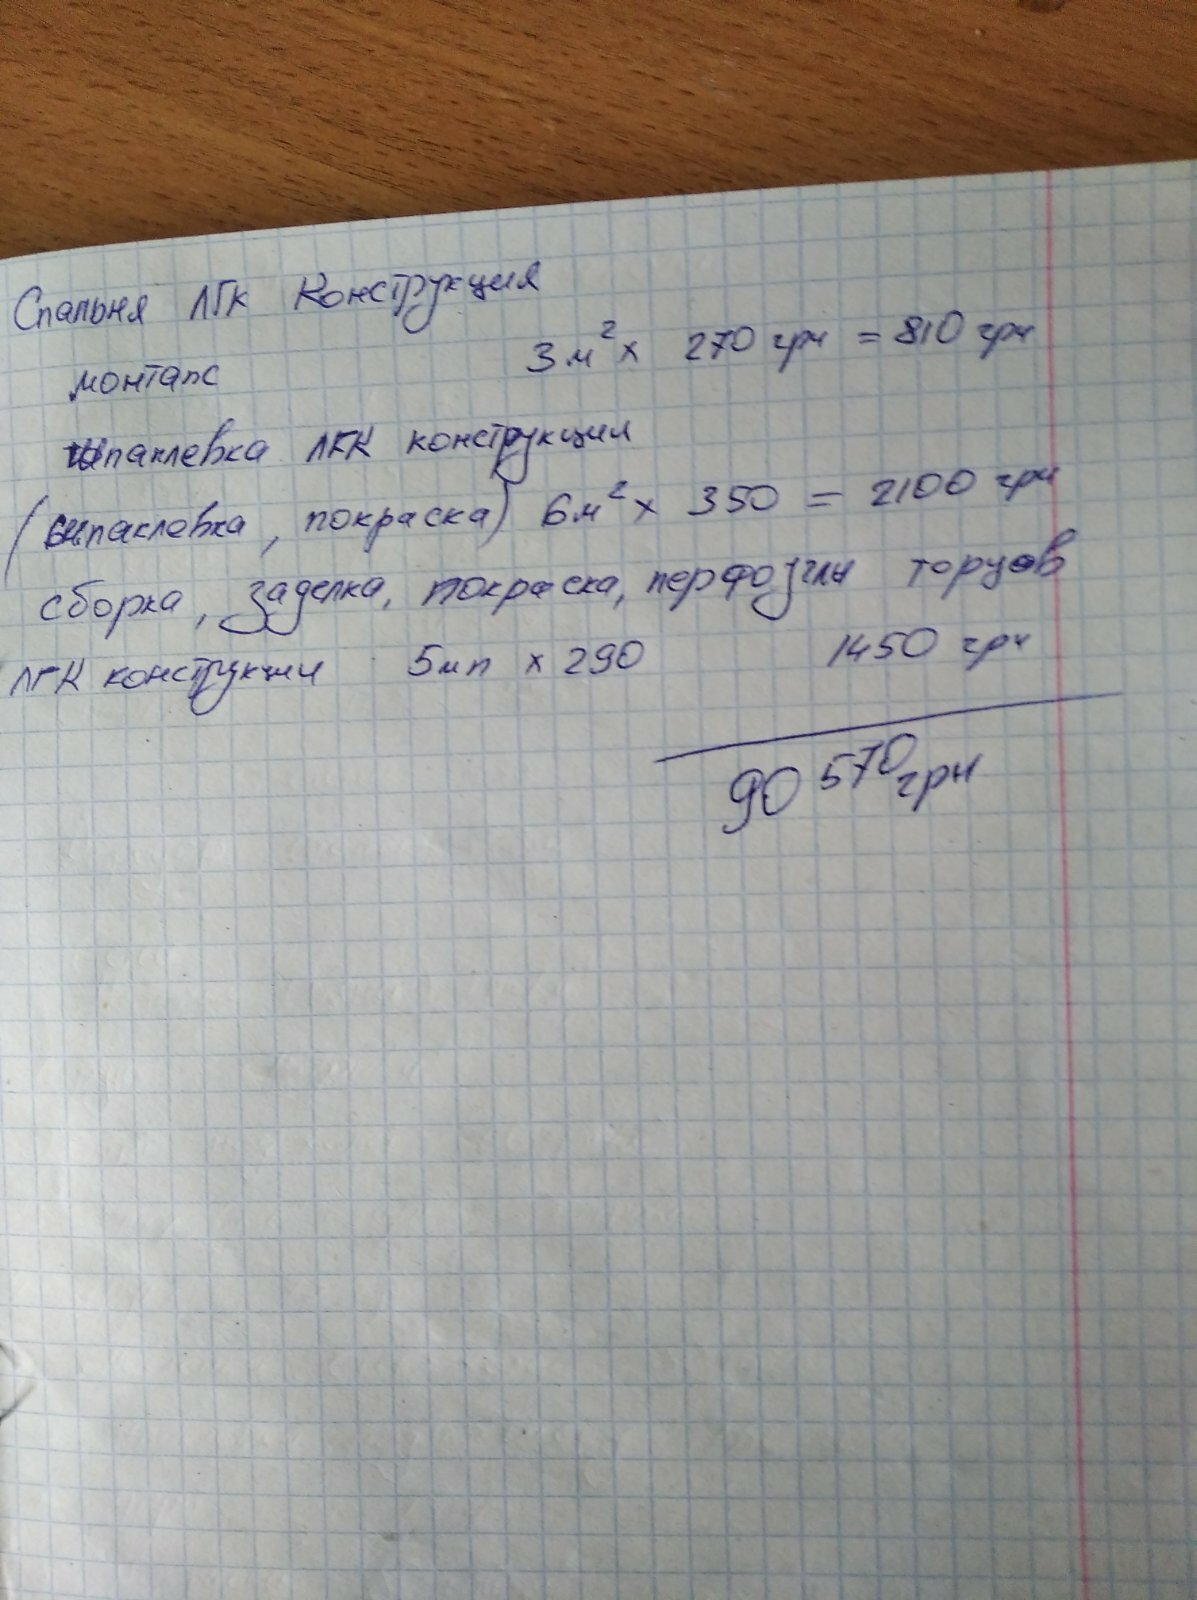 Спальня ЛГК Конструкция
монтаж 3м² х 270 грн = 810 грн
шпаклевка ЛГК конструкции
(шпаклевка, покраска) 6м² х 350 = 2100 грн
сборка, заделка, покраска, перфоуглы торцов
ЛГК конструкции 5мп х 290 1450 грн
90 570 грн